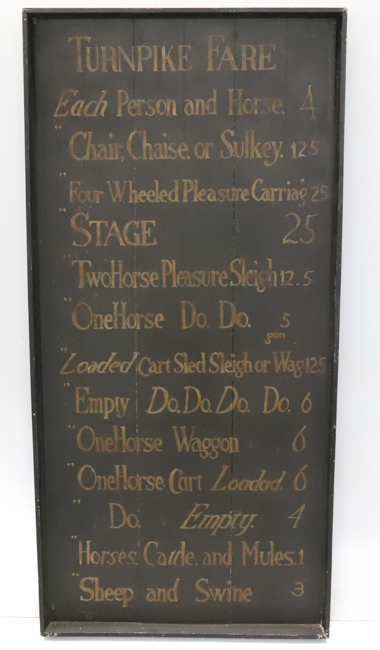 TURNPIKE FARE
Each Person and Horse. 4
" Chair, Chaise. or Sulkey. 12 5
" Four Wheeled Pleasure Carriag 25
" STAGE 25
" Two Horse Pleasure Sleigh 12. 5
" One Horse Do. Do. 5
gon
" Loaded Cart Sled Sleigh or Wag 12 5
" Empty Do. Do. Do. Do. 6
" One Horse Waggon 6
" One Horse Cart Loaded. 6
" Do. Empty. 4
" Horses. Cattle. and Mules. 1
" Sheep and Swine 3